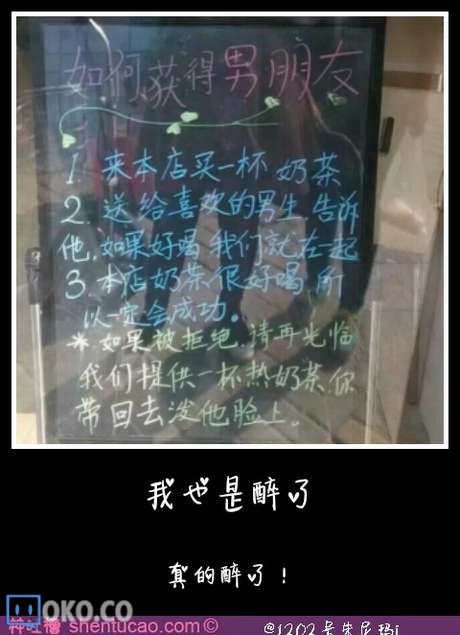 如何获得男朋友
1. 来本店买一杯 奶茶
2. 送给喜欢的男生,告诉
他,如果好喝 我们就在一起
3 本店奶茶很好喝 所
以一定会成功。
*如果被拒绝,请再光临
我们提供一杯热奶茶,你
带回去泼他脸上。
我也是醉了
真的醉了！
OKO.CO
神吐槽 shentucao.com©
@1202号朱尼玛i